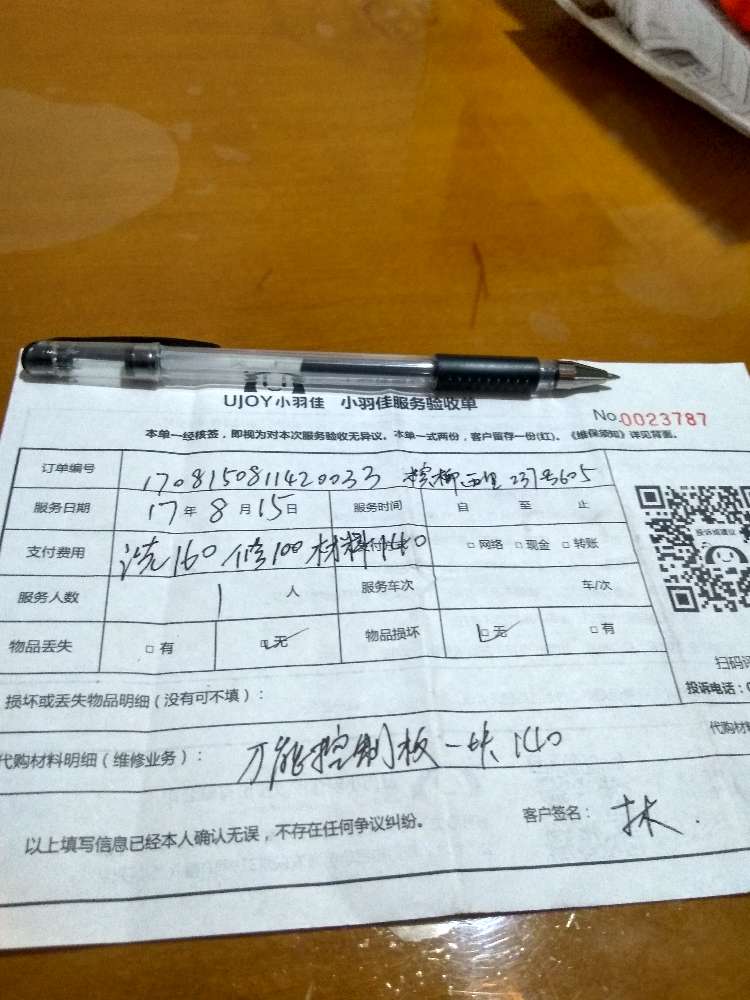 UJOY小羽佳 小羽佳服务验收单
No.0023787
本单一经核签，即视为对本次服务验收无异议。本单一式两份，客户留存一份(红)。《维保须知》详见背面。
订单编号 1708150811420033 槟榔西里237号605
服务日期 17年8月15日 服务时间 自 至 止
支付费用 洗160 修100 材料140 □网络 □现金 □转账
服务人数 1人 服务车次 车/次
物品丢失 □有 □无 物品损坏 □无 □有
投诉或建议
扫码
投诉电话：0
损坏或丢失物品明细（没有可不填）：
代购材料明细（维修业务）： 万能控制板一块140
代购材料
以上填写信息已经本人确认无误，不存在任何争议纠纷。
客户签名： 林